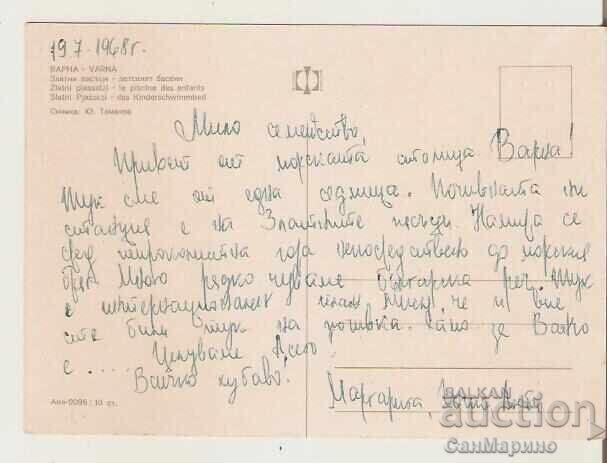 19 7. 1968г.
ВАРНА - VARNA
Златни пясъци - детският басейн
Zlatni piassatzi - la piscine des enfants
Slatni Pjasazi - das Kinderschwimmbad
Снимка: Ю. Томанов
Мило семейство,
Привет от морската столица Варна!
Тук сме от една седмица. Почивката ни
е на Златните пясъци. Намира се
сред гора непосредствено до морския
бряг. Много рядко чуваме българска реч. Тук
е интернационален че и вие
сте били тук на почивка. за
е .... Целуваме
Всичко хубаво!
Маргарита,
Ана-2095; 10 ст.
BALKAN
auction
СанМарино